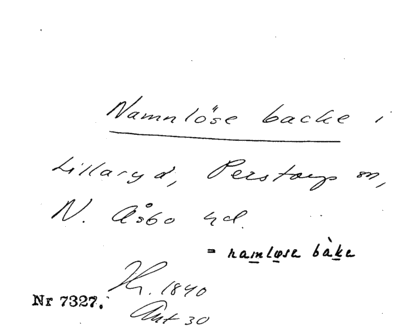 Namnlöse backe i
Lillaryd, Perstorp sn,
N. Åsbo hd.
= namløse bàke
Hr. 1840
Ant 30
Nr 7327.